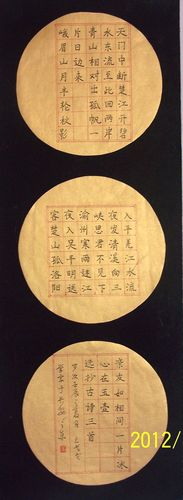 天门中断楚江开碧
水东流至此回两岸
青山相对出孤帆一
片日边来
峨眉山月半轮秋影
入平羌江水流
夜发清溪向三
峡思君不见下
渝州寒雨连江
夜入吴平明送
客楚山孤洛阳
亲友如相问一片冰
心在玉壶
选抄古诗三首
2012/